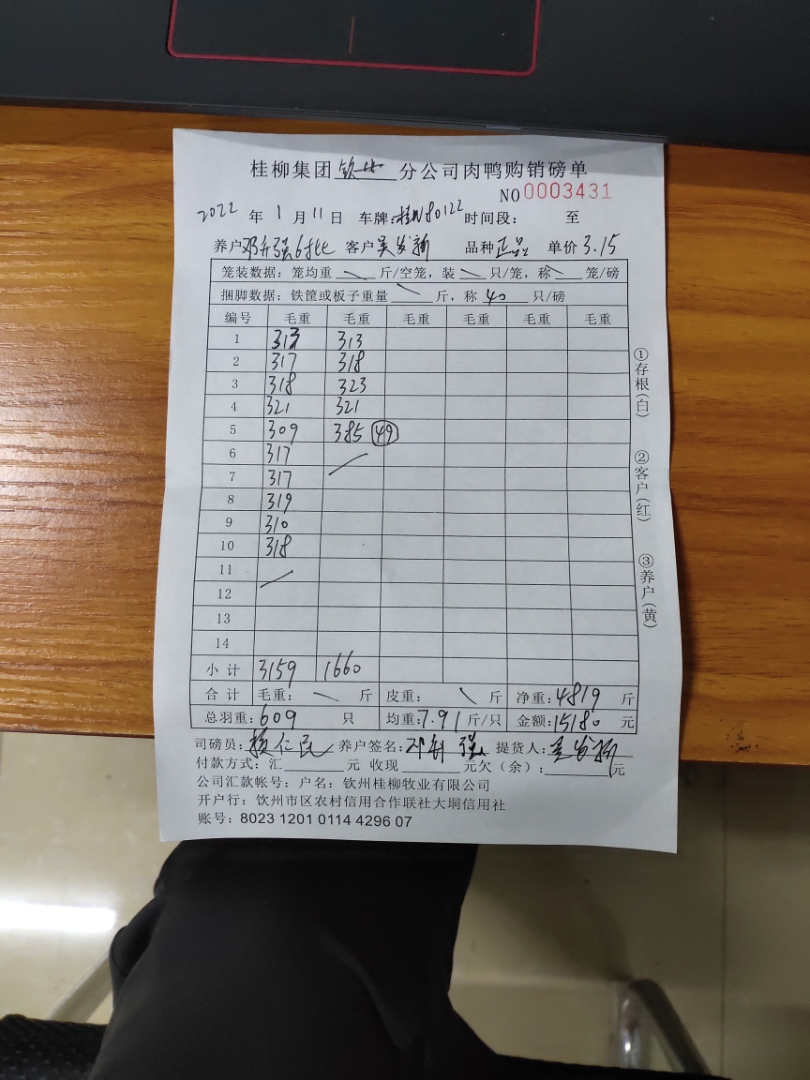 桂柳集团钦州分公司肉鸭购销磅单
NO 0003431
2022年1月11日 车牌:桂N80122 时间段: 至
养户 邓升强6批 客户 吴发新 品种 正品 单价 3.15
笼装数据:笼均重 斤/空笼,装 只/笼,称 笼/磅
捆脚数据:铁筐或板子重量 斤,称 40 只/磅
编号 毛重 毛重 毛重 毛重 毛重 毛重
1 313 313
2 317 318
3 318 323
4 321 321
5 309 385 49
6 317
7 317
8 319
9 310
10 318
11
12
13
14
小计 3159 1660
合计 毛重: 斤 皮重: 斤 净重:4819 斤
总羽重:609 只 均重:7.91 斤/只 金额:15180 元
司磅员: 仁民 养户签名:邓升强 提货人:吴发新
付款方式:汇 元 收现 元欠(余): 元
公司汇款帐号:户名:钦州桂柳牧业有限公司
开户行:钦州市区农村信用合作联社大垌信用社
账号:8023 1201 0114 4296 07
①存根(白)
②客户(红)
③养户(黄)